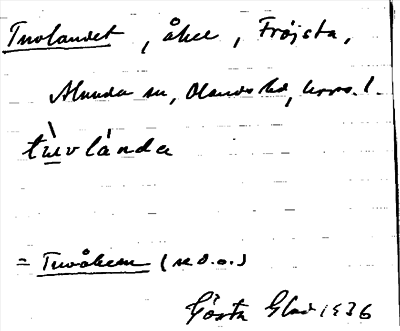 Tuvlandet, åker, Fröjsta,
Alunda sn, Olands hd, Upps. l.
tùvlánda
= Tuvåkern (se d.o.)
Gösta Glad 1936